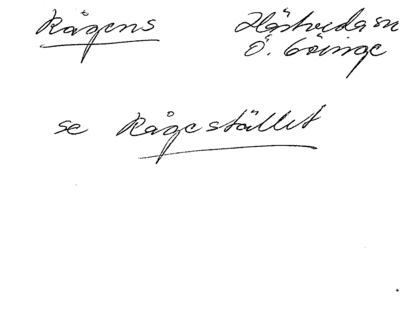 Rågens Hästveda sn
Ö. Göinge
se Rågestället